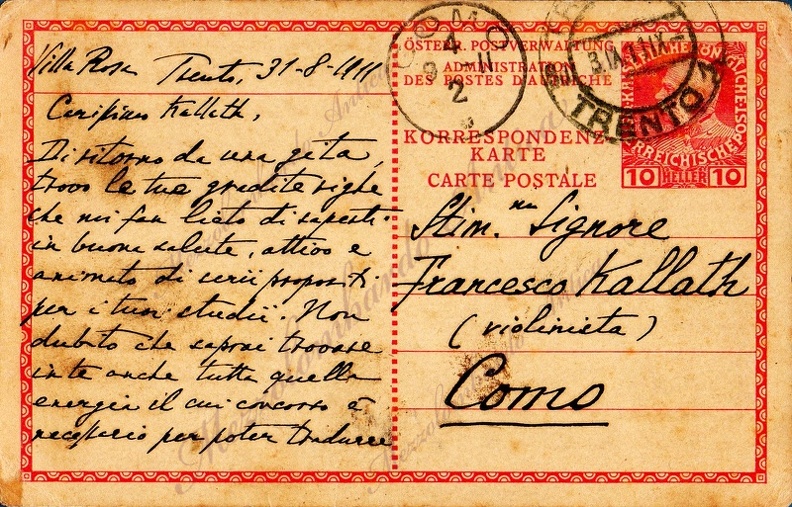 Villa Rosa Trento, 31-8-1911
Carissimo Kallath,
Di ritorno da una gita,
trovo le tue gradite righe
che mi fan lieto di saperti
in buona salute, attivo e
animato di serii propositi
per i tuoi studii. Non
dubito che saprai trovare
in te anche tutta quella
energia il cui concorso è
necessario per poter tradurre
COMO
4
9 11
2
TRENTO
ÖSTERR. POSTVERWALTUNG
ADMINISTRATION
DES POSTES D'AUTRICHE
KORRESPONDENZ
KARTE
CARTE POSTALE
10 HELLER 10
Stim.mo Signore
Francesco Kallath
(violinista)
Como
Mezzolombardo